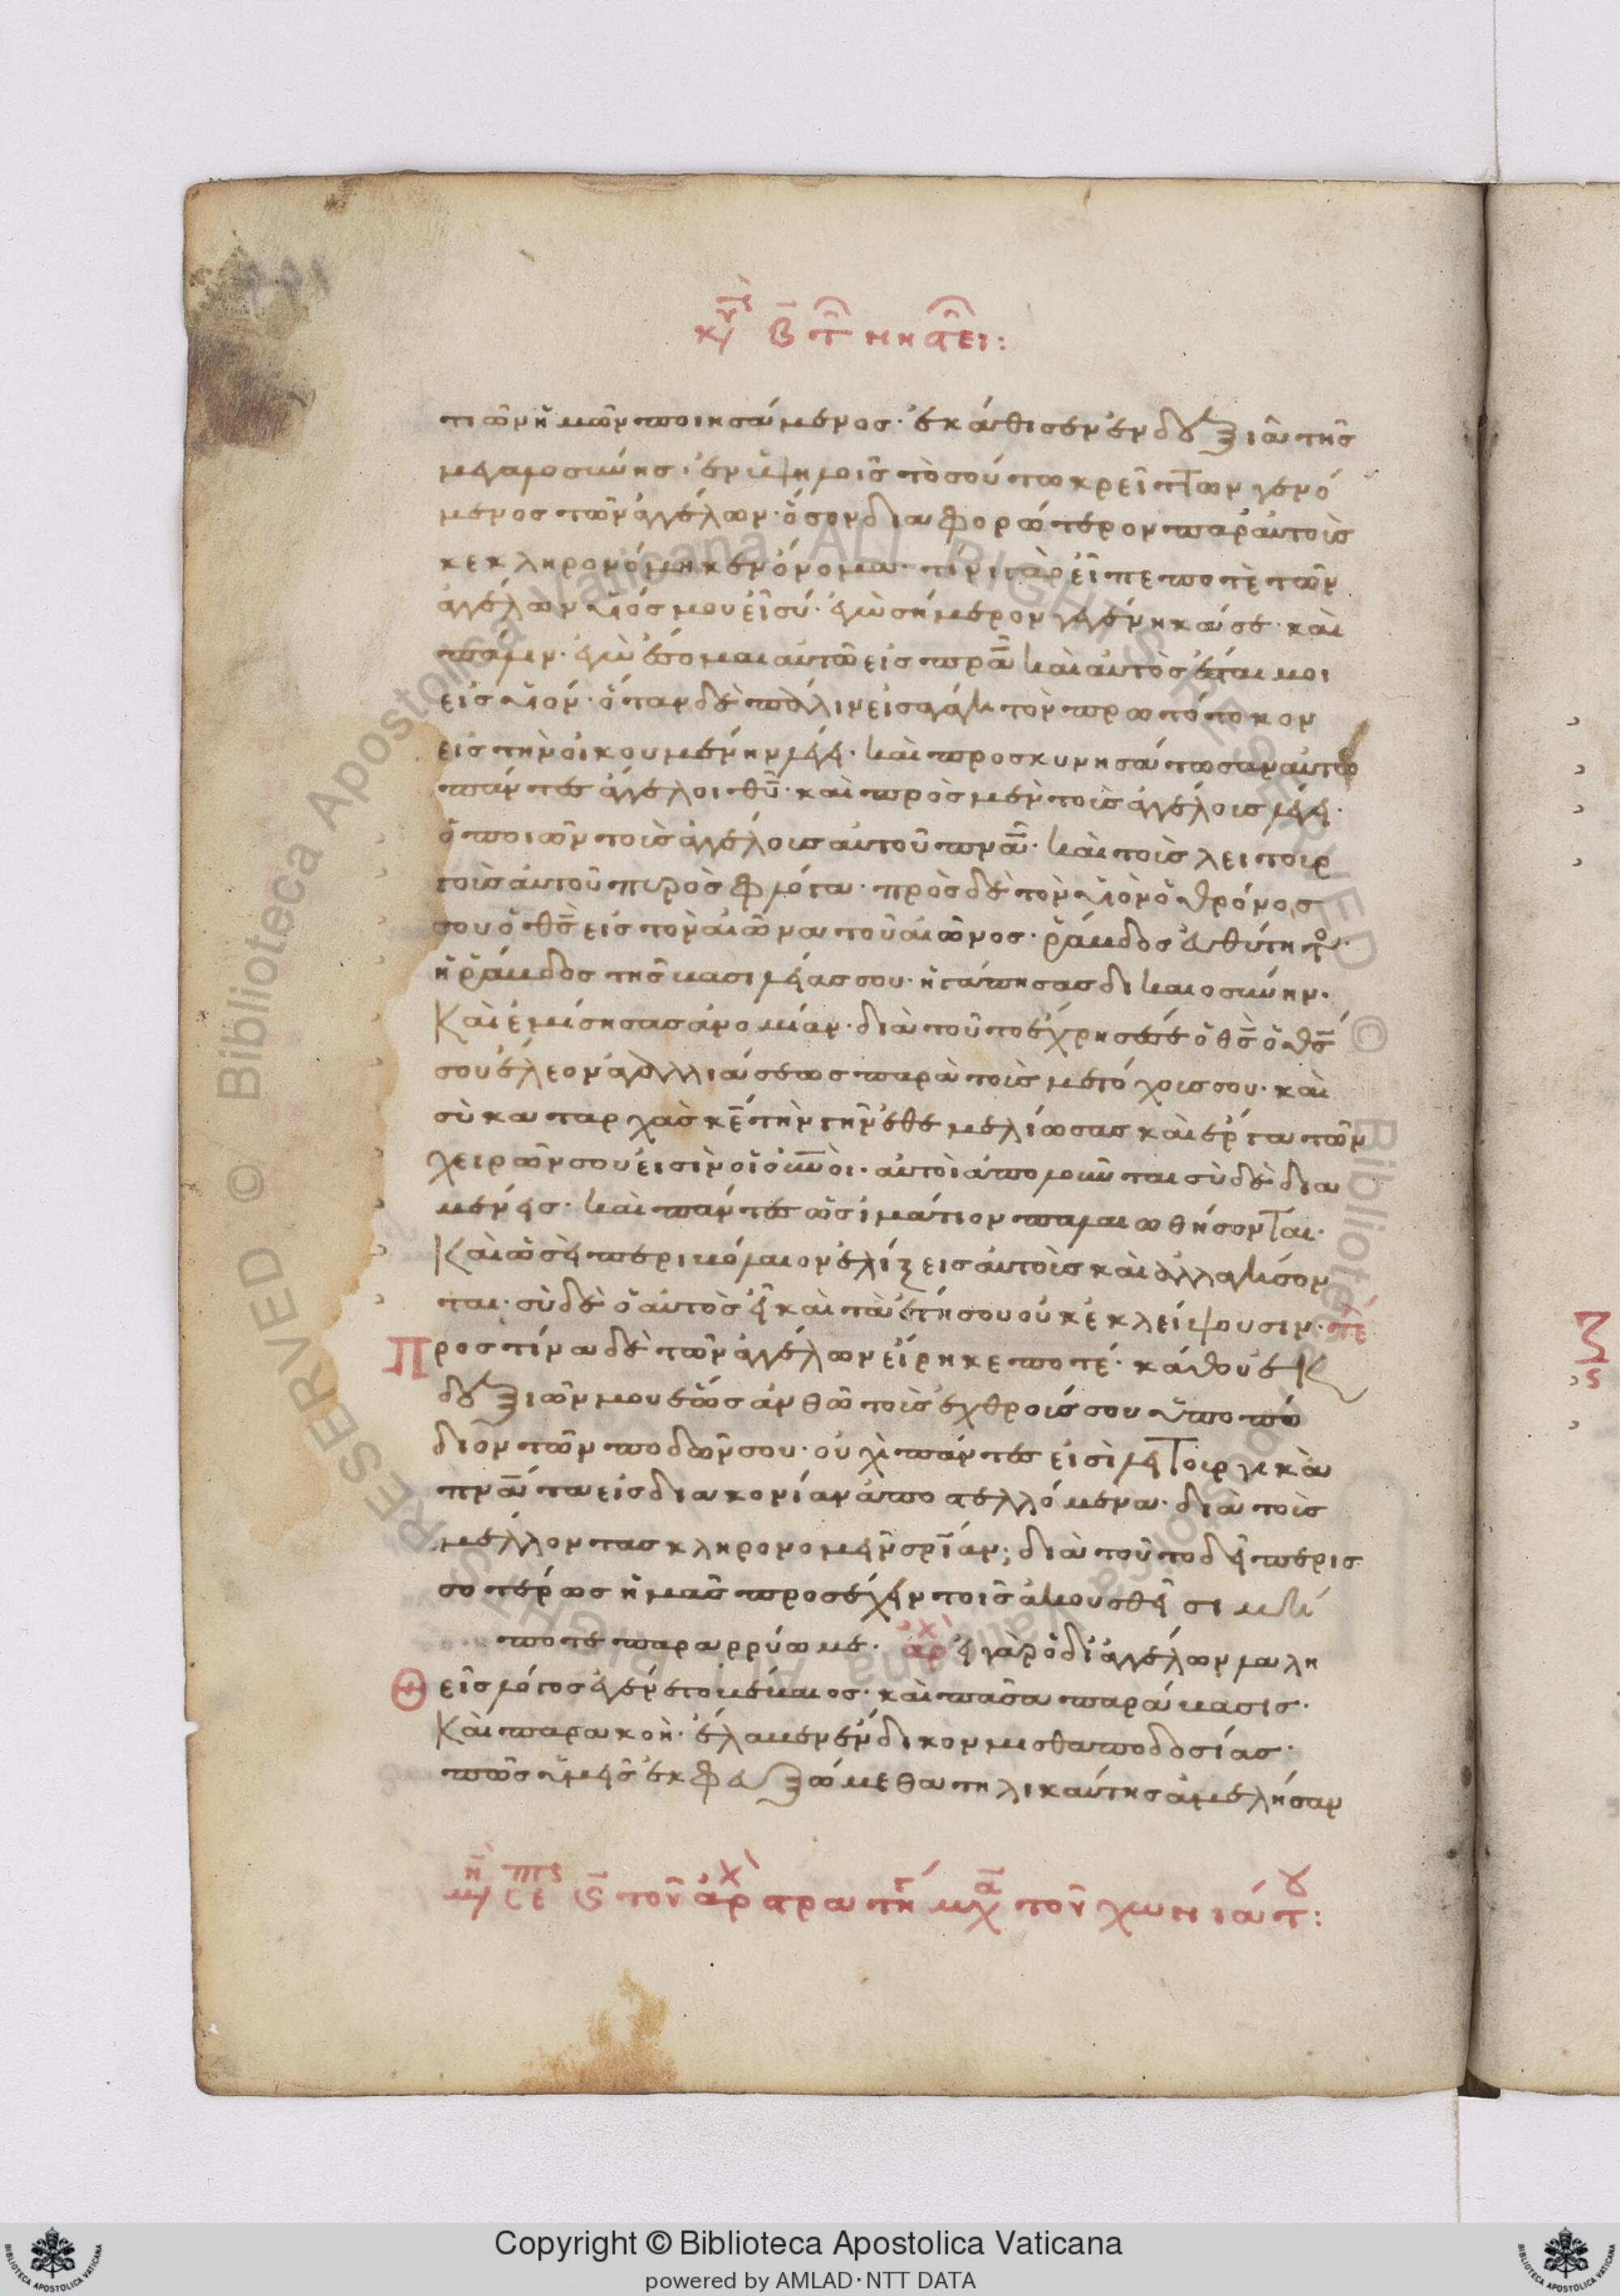 κυ β τ νηστει:
τιῶν ἡμῶν ποιησάμενος· ἐκάθισεν ἐν δεξιᾶ τῆς
μεγαλοσύνης· ἐν ὑψηλοῖς τοσούτω κρείττων γενό
μενος τῶν ἀγγέλων· ὅσον διαφορώτερον παρ αὐτοὺς
κεκληρονόμηκεν ὄνομα· τίνι γὰρ εἶπε ποτὲ τῶν
ἀγγέλων υἱός μου εἶ σύ· ἐγὼ σήμερον γεγέννηκά σε· καὶ
πάλιν· ἐγὼ ἔσομαι αὐτῶ εἰς πρα καὶ αὐτὸς ἔσται μοι
εἰς υἱόν· ὅταν δὲ πάλιν εἰσαγάγη τὸν πρωτότοκον
εἰς τὴν οἰκουμένην λέγει· καὶ προσκυνησάτωσαν αὐτῶ
πάντες ἄγγελοι θυ· καὶ πρὸς μὲν τοὺς ἀγγέλους λέγει·
ὁ ποιῶν τοὺς ἀγγέλους αὐτοῦ πνα· καὶ τοὺς λειτουρ
γοὺς αὐτοῦ πυρὸς φλόγα· πρὸς δὲ τὸν υἱὸν ὁ θρόνος
σου ὁ θς εἰς τὸν αἰῶνα τοῦ αἰῶνος· ῥάβδος εὐθύτητο·
ἡ ῥάβδος τῆς βασιλείας σου· ἠγάπησας δικαιοσύνην·
Καὶ ἐμίσησας ἀνομίαν· διὰ τοῦτο ἔχρησέ σε ὁ θς ὁ θς
σου ἔλεον ἀγαλλιάσεως παρὰ τοὺς μετόχους σου· καὶ
σὺ καταρχὰς κε τὴν γῆν ἐθεμελίωσας καὶ ἔργα τῶν
χειρῶν σου εἰσὶν οἱ οὐνοι· αὐτοὶ ἀπολοῦνται σὺ δὲ δια
μένεις· καὶ πάντες ὡς ἱμάτιον παλαιωθήσονται·
Καὶ ὡσεὶ περιβόλαιον ἑλίξεις αὐτοὺς καὶ ἀλλαγήσον
ται· σὺ δὲ ὁ αὐτὸς εἶ καὶ τὰ ἔτη σου οὐκ ἐκλείψουσιν· τε
Προς τίνα δὲ τῶν ἀγγέλων εἴρηκε ποτέ· κάθου ἐκ
δεξιῶν μου ἕως ἂν θῶ τοὺς ἐχθρούς σου ὑποπό
διον τῶν ποδῶν σου· οὐχὶ πάντες εἰσὶ λειτουργικὰ
πνατα εἰς διακονίαν ἀποστελλόμενα· διὰ τοὺς
μέλλοντας κληρονομεῖν σρίαν; διὰ τοῦτο δεῖ περισ
σοτέρως ἡμᾶς προσέχειν τοῖς ἀκουσθεῖσι μή
ποτε παραρρύωμε· ἀρχ εἰ γὰρ ὁ δι ἀγγέλων λαλη
Θεὶς λόγος ἐγένετο βέβαιος· καὶ πᾶσα παράβασις·
Καὶ παρακοὴ· ἔλαβεν ἔνδικον μισθαποδοσίας·
πῶς ἡμεῖς ἐκφευξώμεθα τηλικαύτης ἀμελήσαν
μην σε ϛ τοῦ ἀρχ στρατηγ μχα τοῦ χωνιάτου: